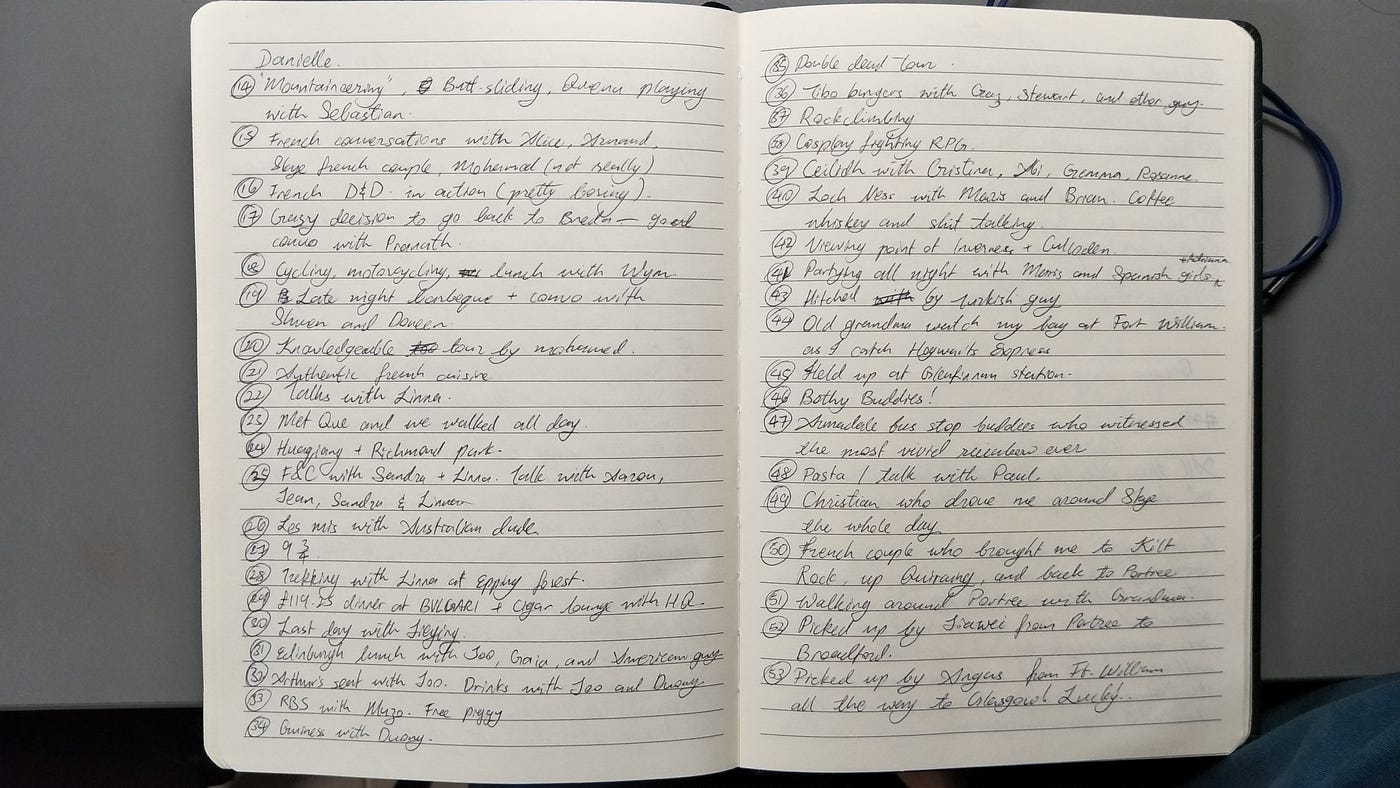 Danielle.
(14) "Mountaineering", Butt-sliding, playing
with Sebastian.
(15) French conversations with Alice, Armand,
Skye french couple, Mohamad (not really)
(16) French D&D in action (pretty boring).
(17) Crazy decision to go back to Breda — good
convo with Pranath.
(18) Cycling, motorcycling, lunch with Wym.
(19) Late night barbeque + convo with
Shwen and Doreen.
(20) Knowledgeable tour by mohamed.
(21) Authentic french cuisine.
(22) Talks with Linna.
(23) Met Que and we walked all day.
(24) Huaqiang + Richmond Park.
(25) F&C with Sandra + Linna. Talk with Aaron,
Jean, Sandra & Linna
(26) Les mis with Australian dude
(27) 9 3/4.
(28) Trekking with Linna at Epping forest.
(29) £119.25 dinner at BVLGARI + Cigar lounge with HQ.
(30) Last day with Jieying.
(31) Edinburgh lunch with Joo, Gaia, and American guy
(32) Arthur's seat with Joo. Drinks with Joo and Duony
(33) RBS with Muzo. Free piggy
(34) Guiness with Duony.
(35) Double dead tour.
(36) Tibo burgers with Craig, Stewart, and other guy.
(37) Rockclimbing
(38) Cosplay fighting RPG.
(39) Ceilidh with Cristina, Abi, Gemma, Rosanne.
(40) Loch Ness with Maris and Brian. Coffee
whiskey and shit talking.
(42) Viewing point of Inverness + Culloden.
(41) Partying all night with Maris and Spanish girls
(43) Hitched by turkish guy
(44) Old grandma watch my bag at Fort William.
as I catch Hogwarts Express
(45) Held up at Glenfinnan station.
(46) Bothy Buddies!
(47) Armadale bus stop buddies who witnessed
the most vivid rainbow ever
(48) Pasta / talk with Paul.
(49) Christian who drove me around Skye
the whole day
(50) French couple who brought me to Kilt
Rock, up Quiraing, and back to Portree
(51) Walking around Portree with Grandma.
(52) Picked up by Jiawei from Portree to
Broadford.
(53) Picked up by Angus from Ft. William
all the way to Glasgow! Lucky..